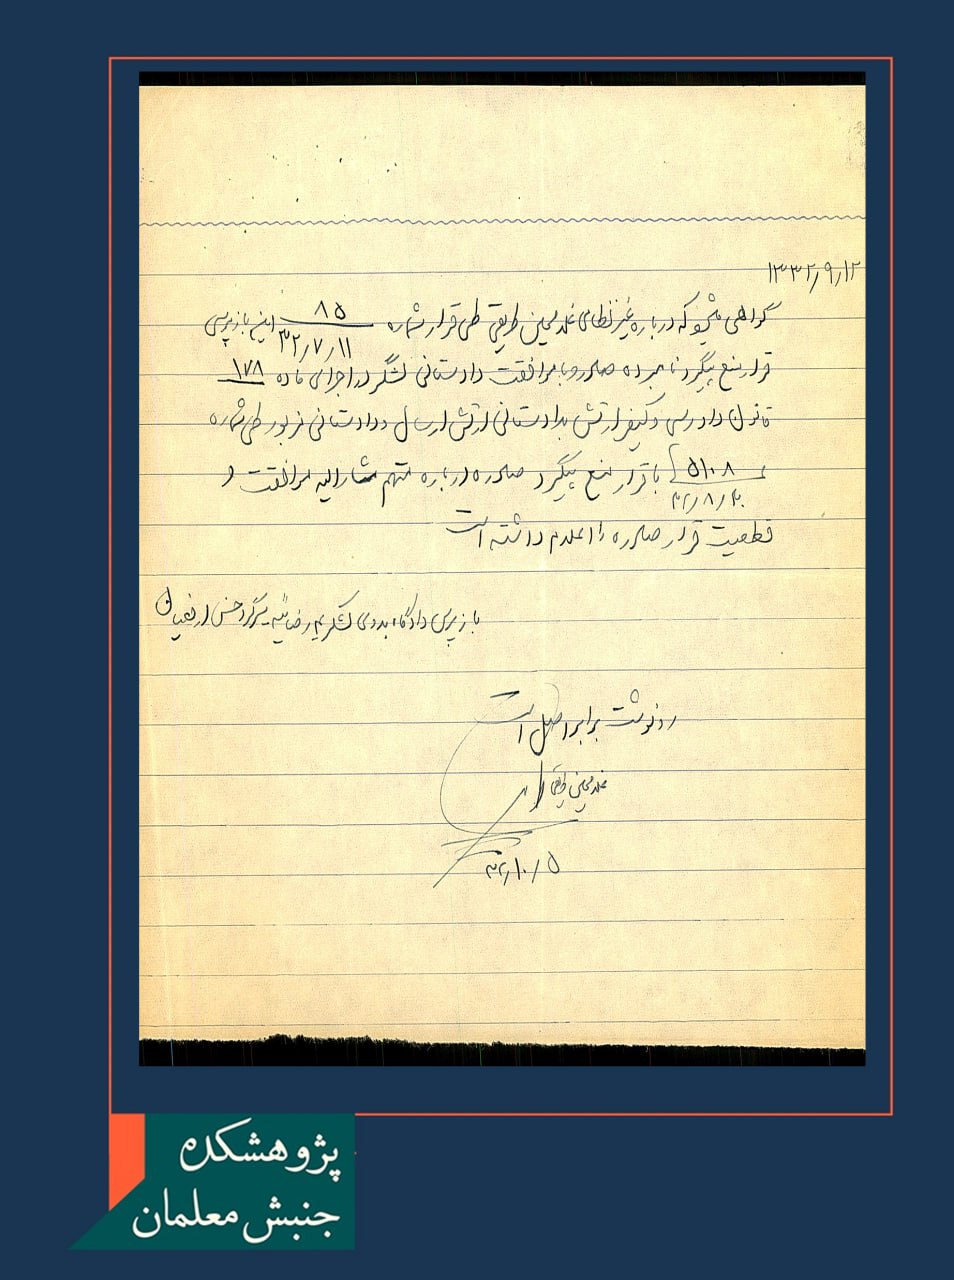 ۱۳۳۲/۹/۱۲
گواهی میشود که درباره غیر نظامی محمد حسین طریقی طی قرار شماره ۸۵ ۳۲/۷/۱۱ این بازپرسی
قرار منع پیگرد نامبرده صادر و با موافقت دادستانی لشگر در اجرای ماده ۱۷۸
قانون دادرسی و کیفر ارتش بدادستانی ارتش ارسال و دادستانی مزبور طی شماره
۵۱۰۸ با قرار منع پیگرد صادره درباره متهم مشارالیه موافقت و
قطعیت قرار صادره را اعلام داشته است
بازپرس دادگاه بدوی لشگر رضائیه سرگرد حسن
رونوشت برابر اصل است
۳۲/۱۰/۵
پژوهشکده
جنبش معلمان